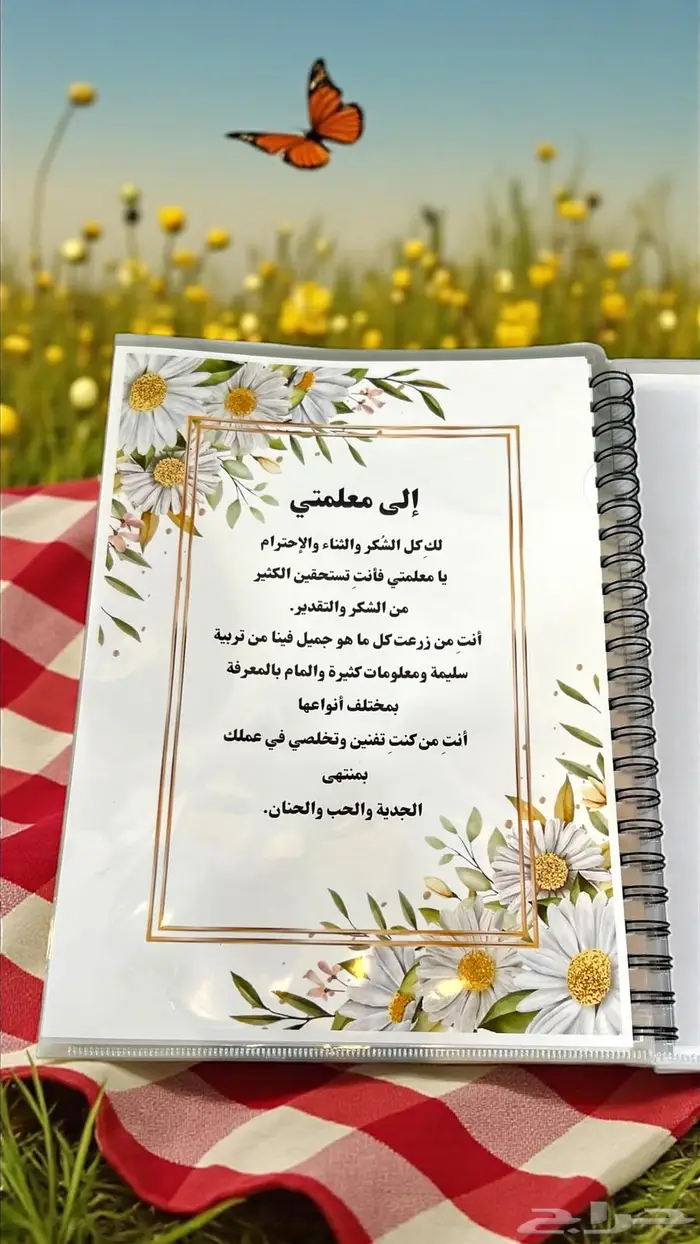 إلى معلمتي
لكِ كل الشكر والثناء والإحترام
يا معلمتي فأنتِ تستحقين الكثير
من الشكر والتقدير.
أنتِ من زرعت كل ما هو جميل فينا من تربية
سليمة ومعلومات كثيرة والمام بالمعرفة
بمختلف أنواعها
أنتِ من كنتِ تفنين وتخلصي في عملك
بمنتهى
الجدية والحب والحنان.
حراج